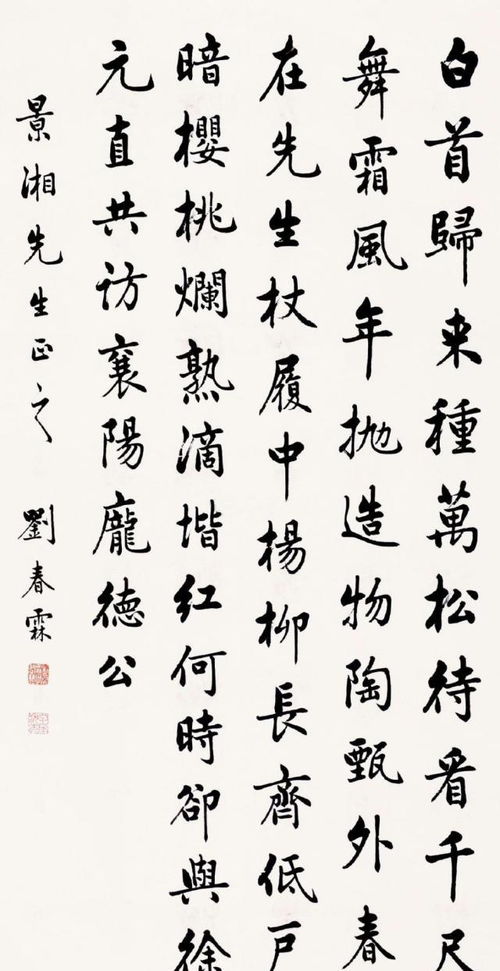 白首歸来種萬松待看千尺
舞霜風年抛造物陶甄外春
在先生杖履中楊柳長齊低戸
暗櫻桃爛熟滴堦红何時卻與徐
元直共访襄陽龐德公
景湘先生正之
劉春霖